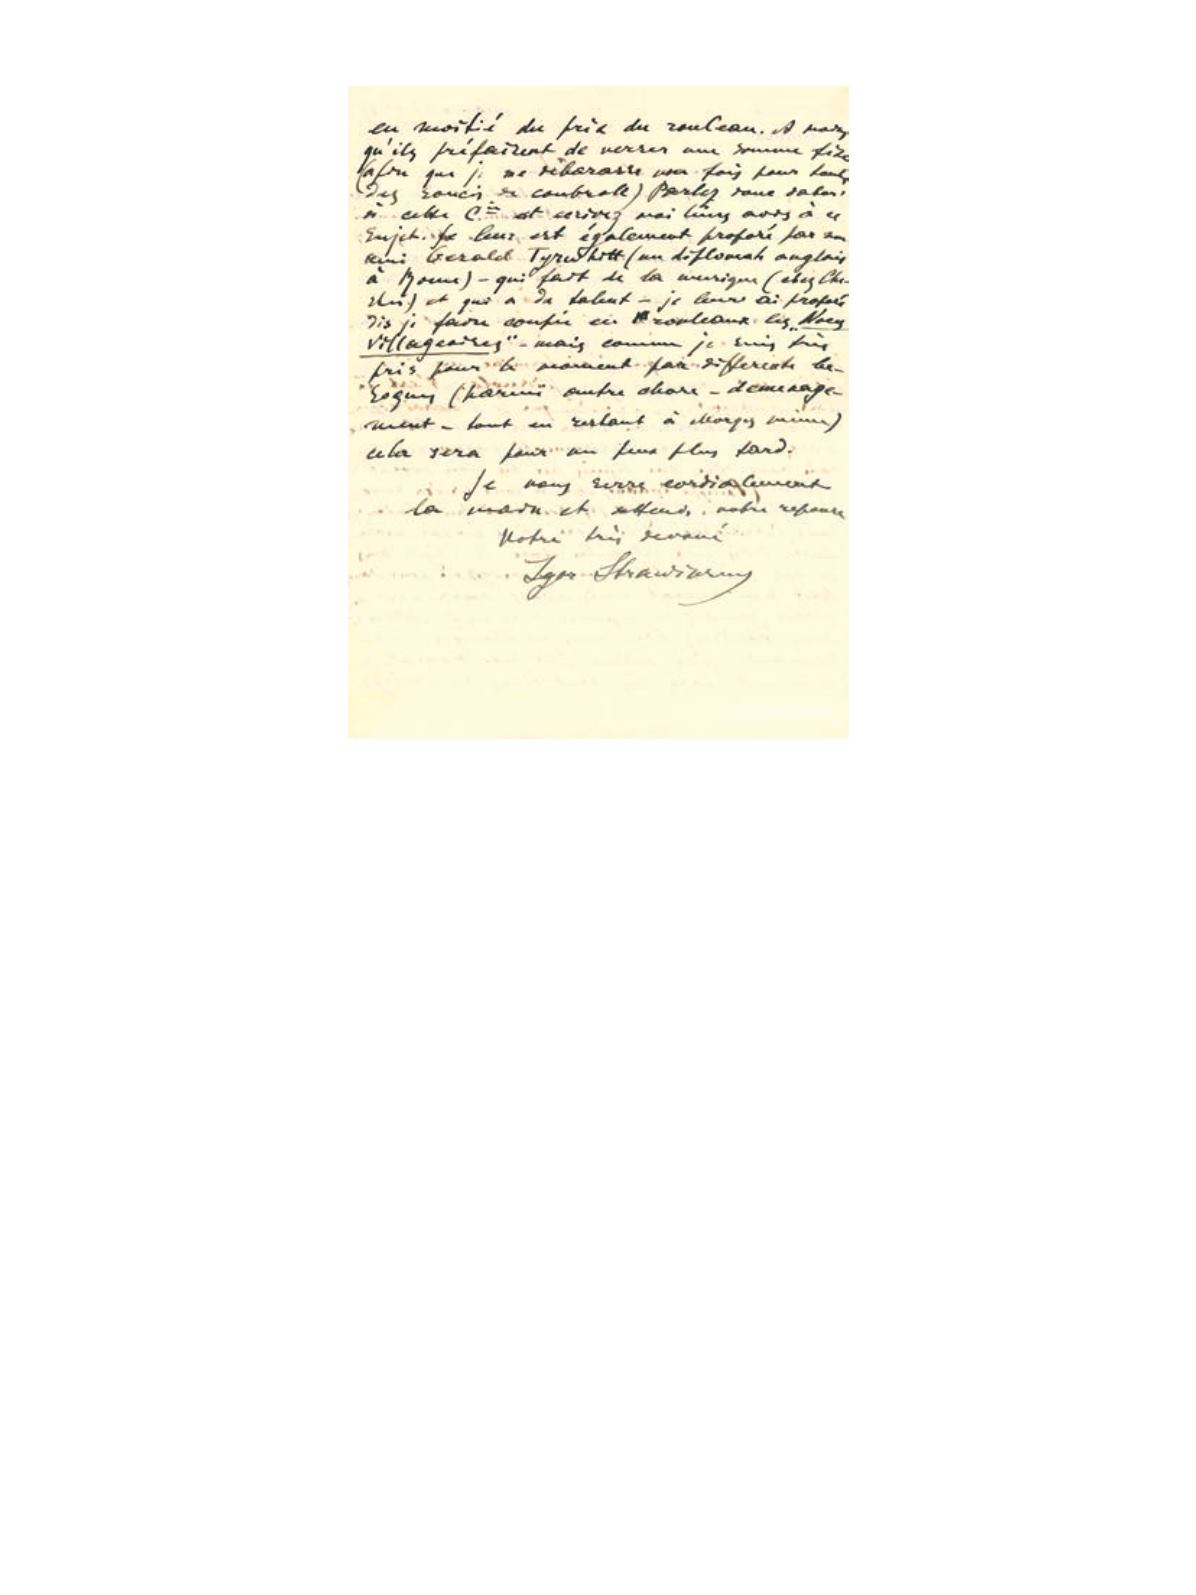 en moitié du prix du rouleau. A moins
qu'ils préfairent de verser une somme fixe
(afin que je me débarasse une fois pour toute
des soucis de controle) Parlez donc
à cette Cie et ecrivez moi leurs avis à ce
sujet. Je leur est également proposé par
ami Gerald Tyrwhitt (un diplomate anglais
à Rome) – qui fait de la musique (chez Che-
) et qui a du talent – je leurs ai proposé
dis je faire en rouleaux les „Noces
Villageoises" – mais comme je suis très
pris pour le moment par differente be-
sognes (parmi autre chose – demenage-
ment – tout en restant à Morges même)
cela sera pour un peu plus tard.
Je vous serre cordialement
la main et attends votre reponse
Votre très devoué
Igor Strawinsky